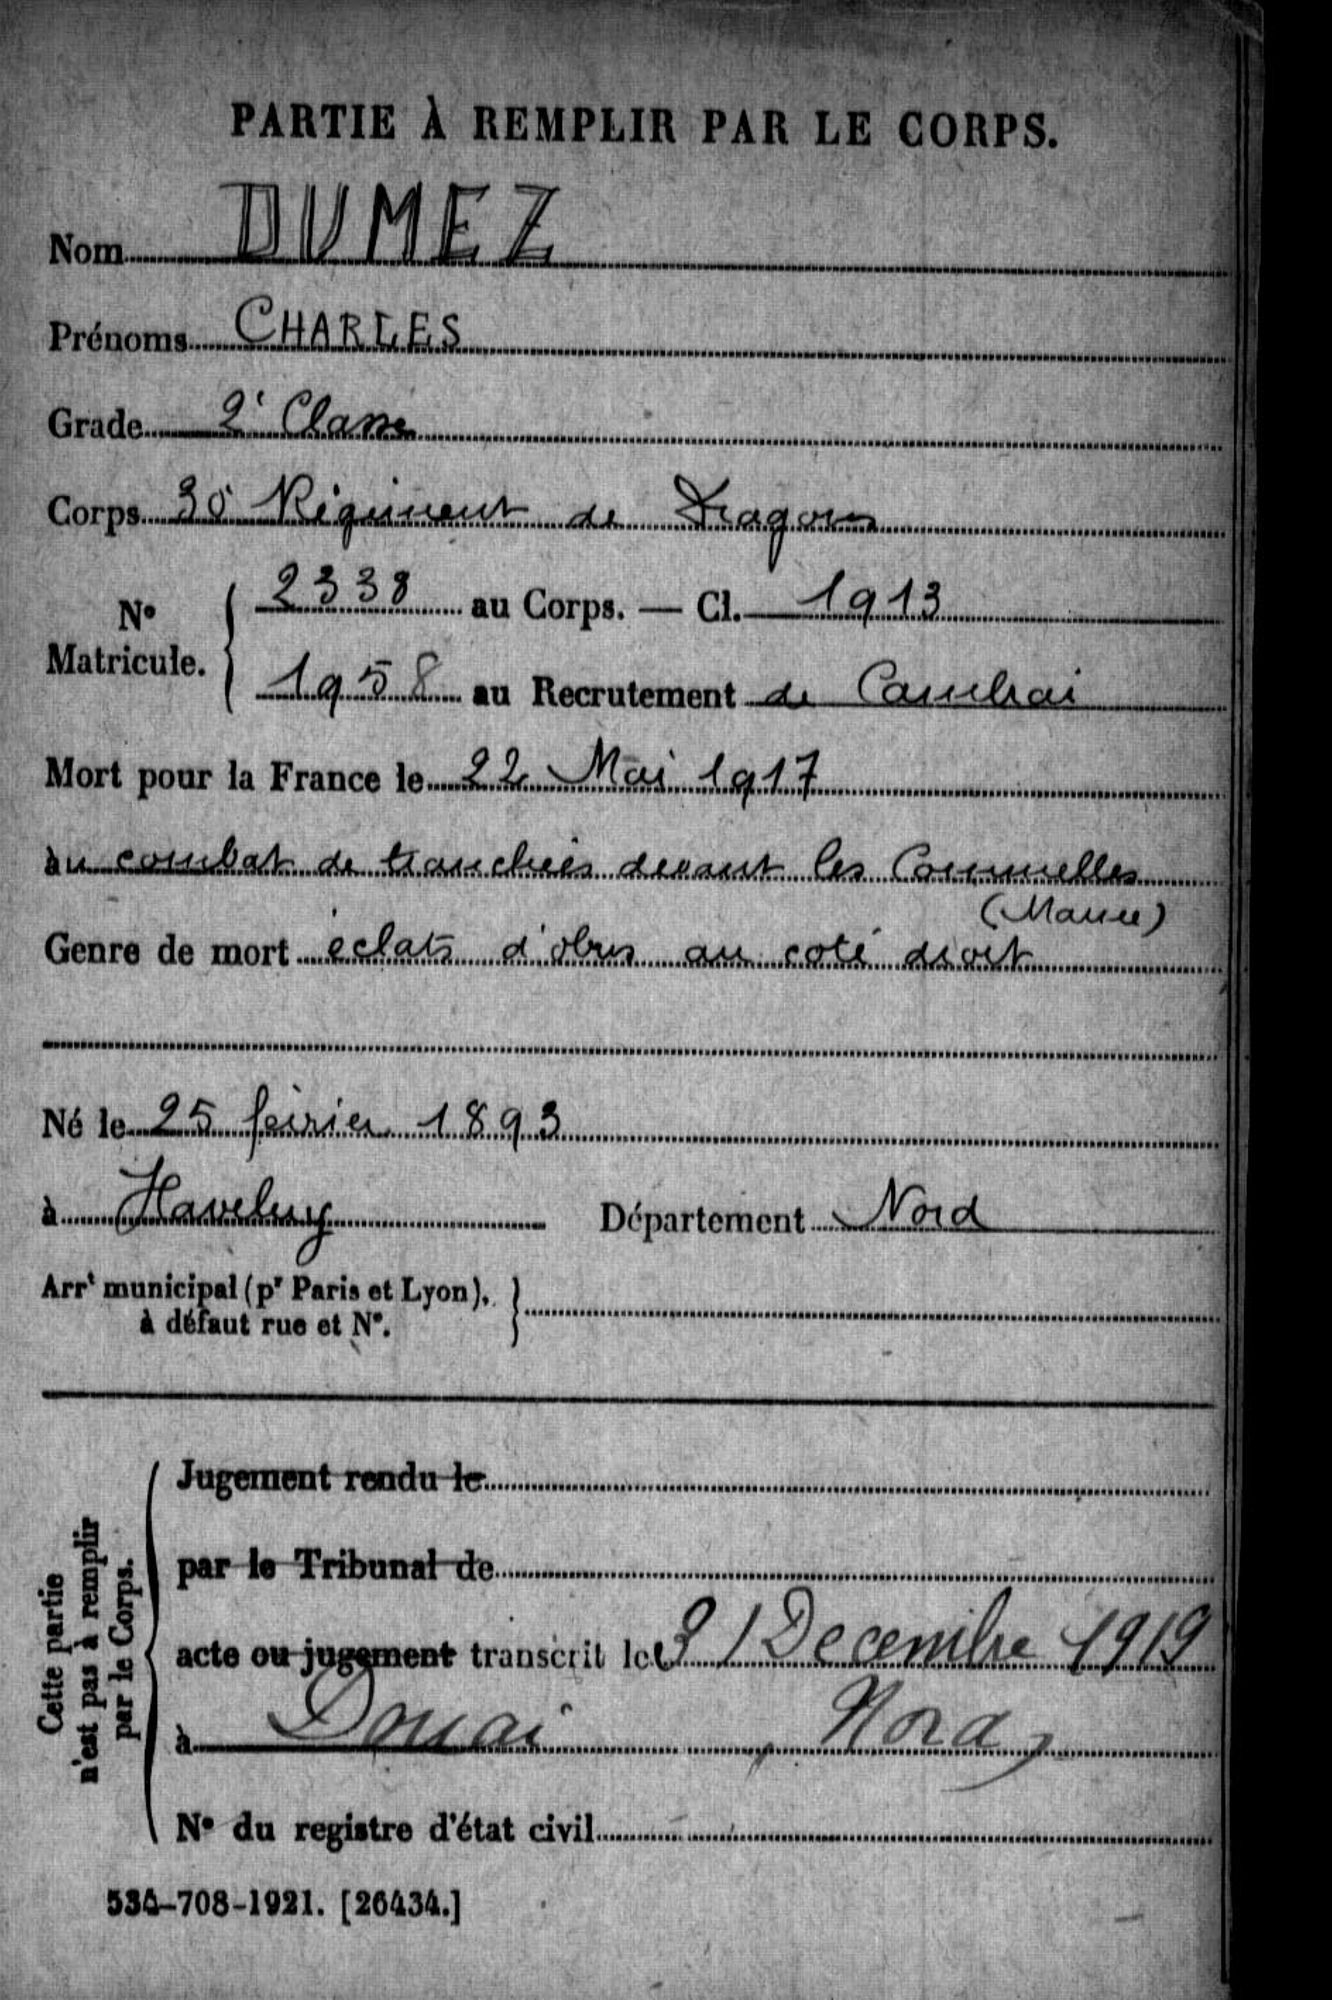 PARTIE À REMPLIR PAR LE CORPS.
Nom DUMEZ
Prénoms CHARLES
Grade 2e Classe
Corps 30e Régiment de Dragons
No Matricule. { 2338 au Corps. — Cl. 1913
1958 au Recrutement de Cambrai
Mort pour la France le 22 Mai 1917
au combat de tranchées devant les
(Marne)
Genre de mort éclats d'obus au coté droit
Né le 25 février 1893
à Haveluy Département Nord
Arrt municipal (pr Paris et Lyon), à défaut rue et No. }
Cette partie n'est pas à remplir par le Corps.
Jugement rendu le
par le Tribunal de
acte ou jugement transcrit le 31 Decembre 1919
à Douai, Nord
No du registre d'état civil
534-708-1921. [26434.]